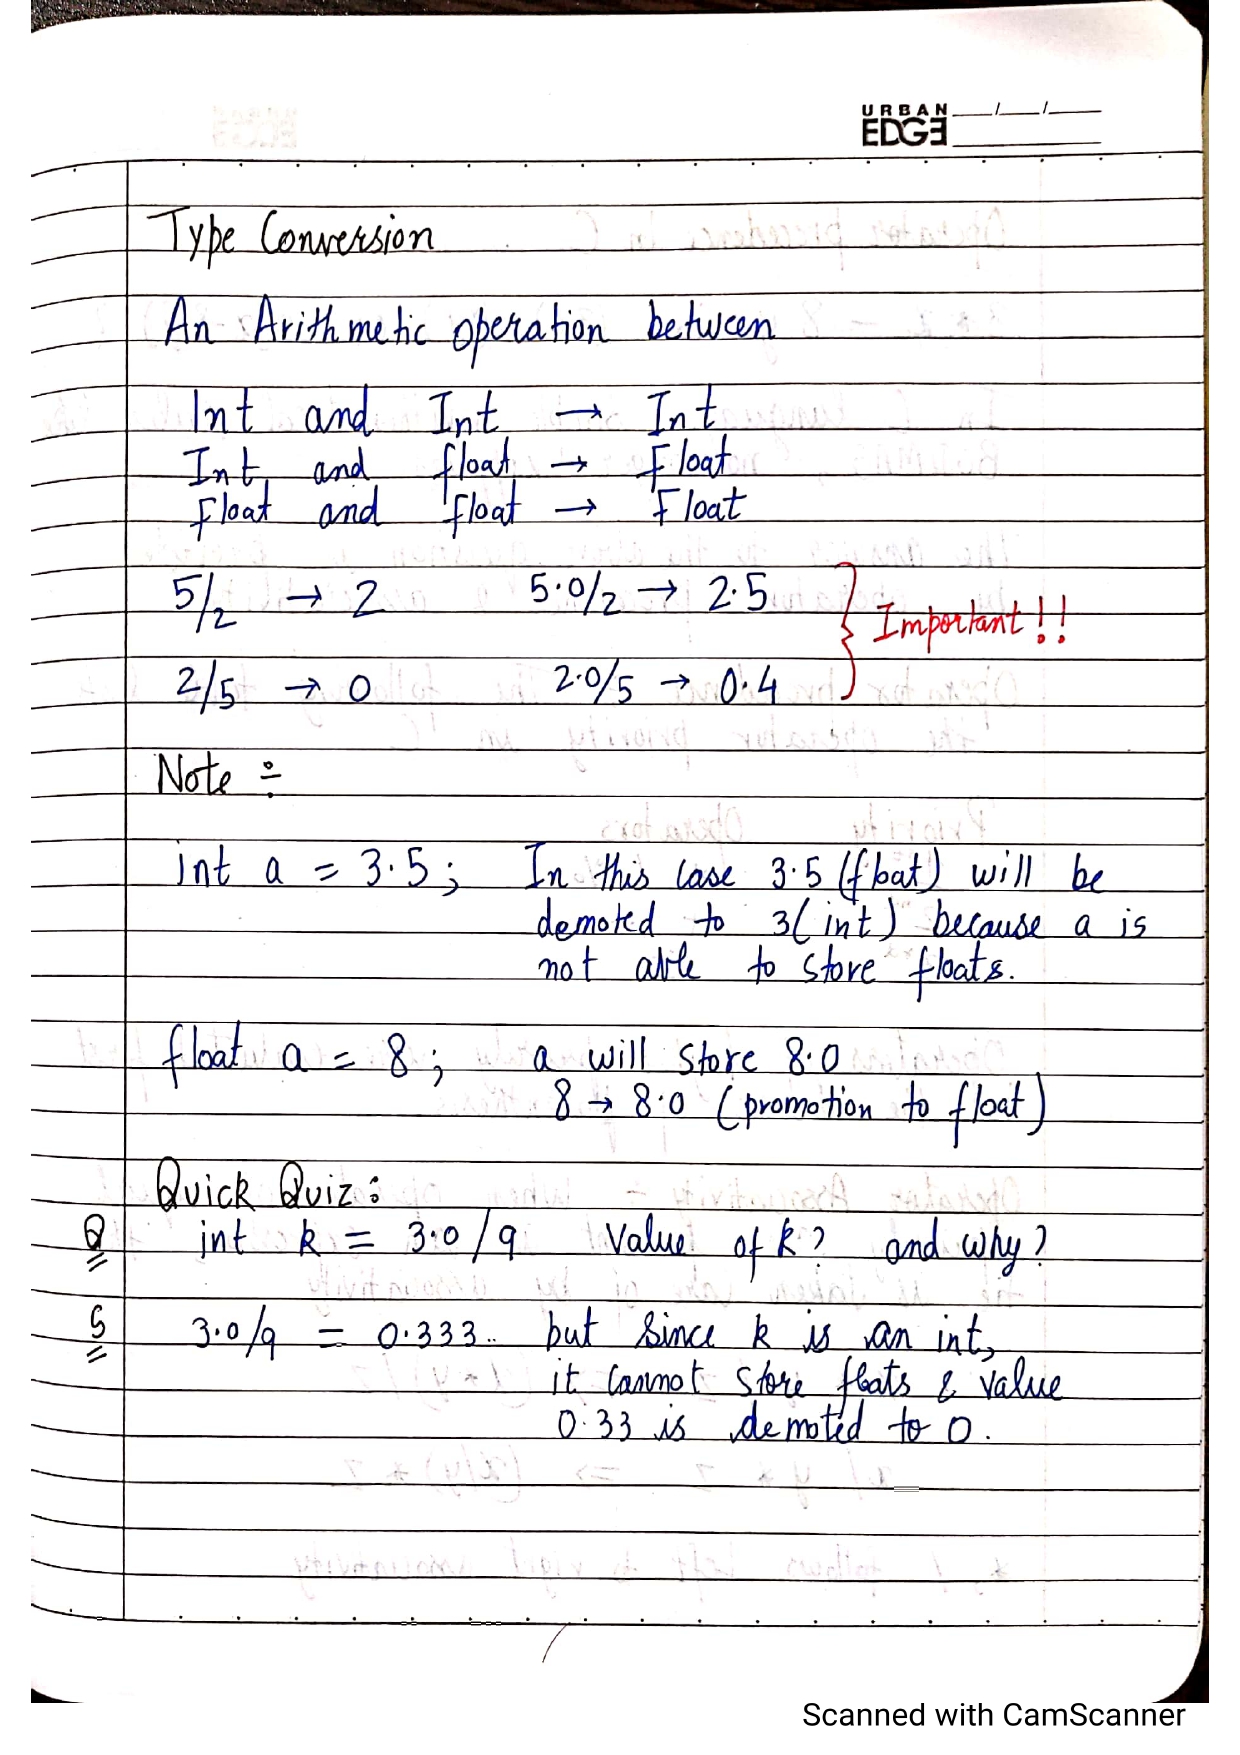 URBAN __/__/__
EDGE
Type Conversion
An Arithmetic operation between
Int and Int → Int
Int and float → Float
Float and float → Float
5/2 → 2 5.0/2 → 2.5
Important!!
2/5 → 0 2.0/5 → 0.4
Note ÷
int a = 3.5; In this case 3.5 (float) will be
demoted to 3(int) because a is
not able to store floats.
float a = 8; a will store 8.0
8 → 8.0 (promotion to float)
Quick Quiz:
Q int k = 3.0/9 Value of k? and why?
S 3.0/9 = 0.333.. but since k is an int,
it cannot store floats & value
0.33 is demoted to 0.
Scanned with CamScanner